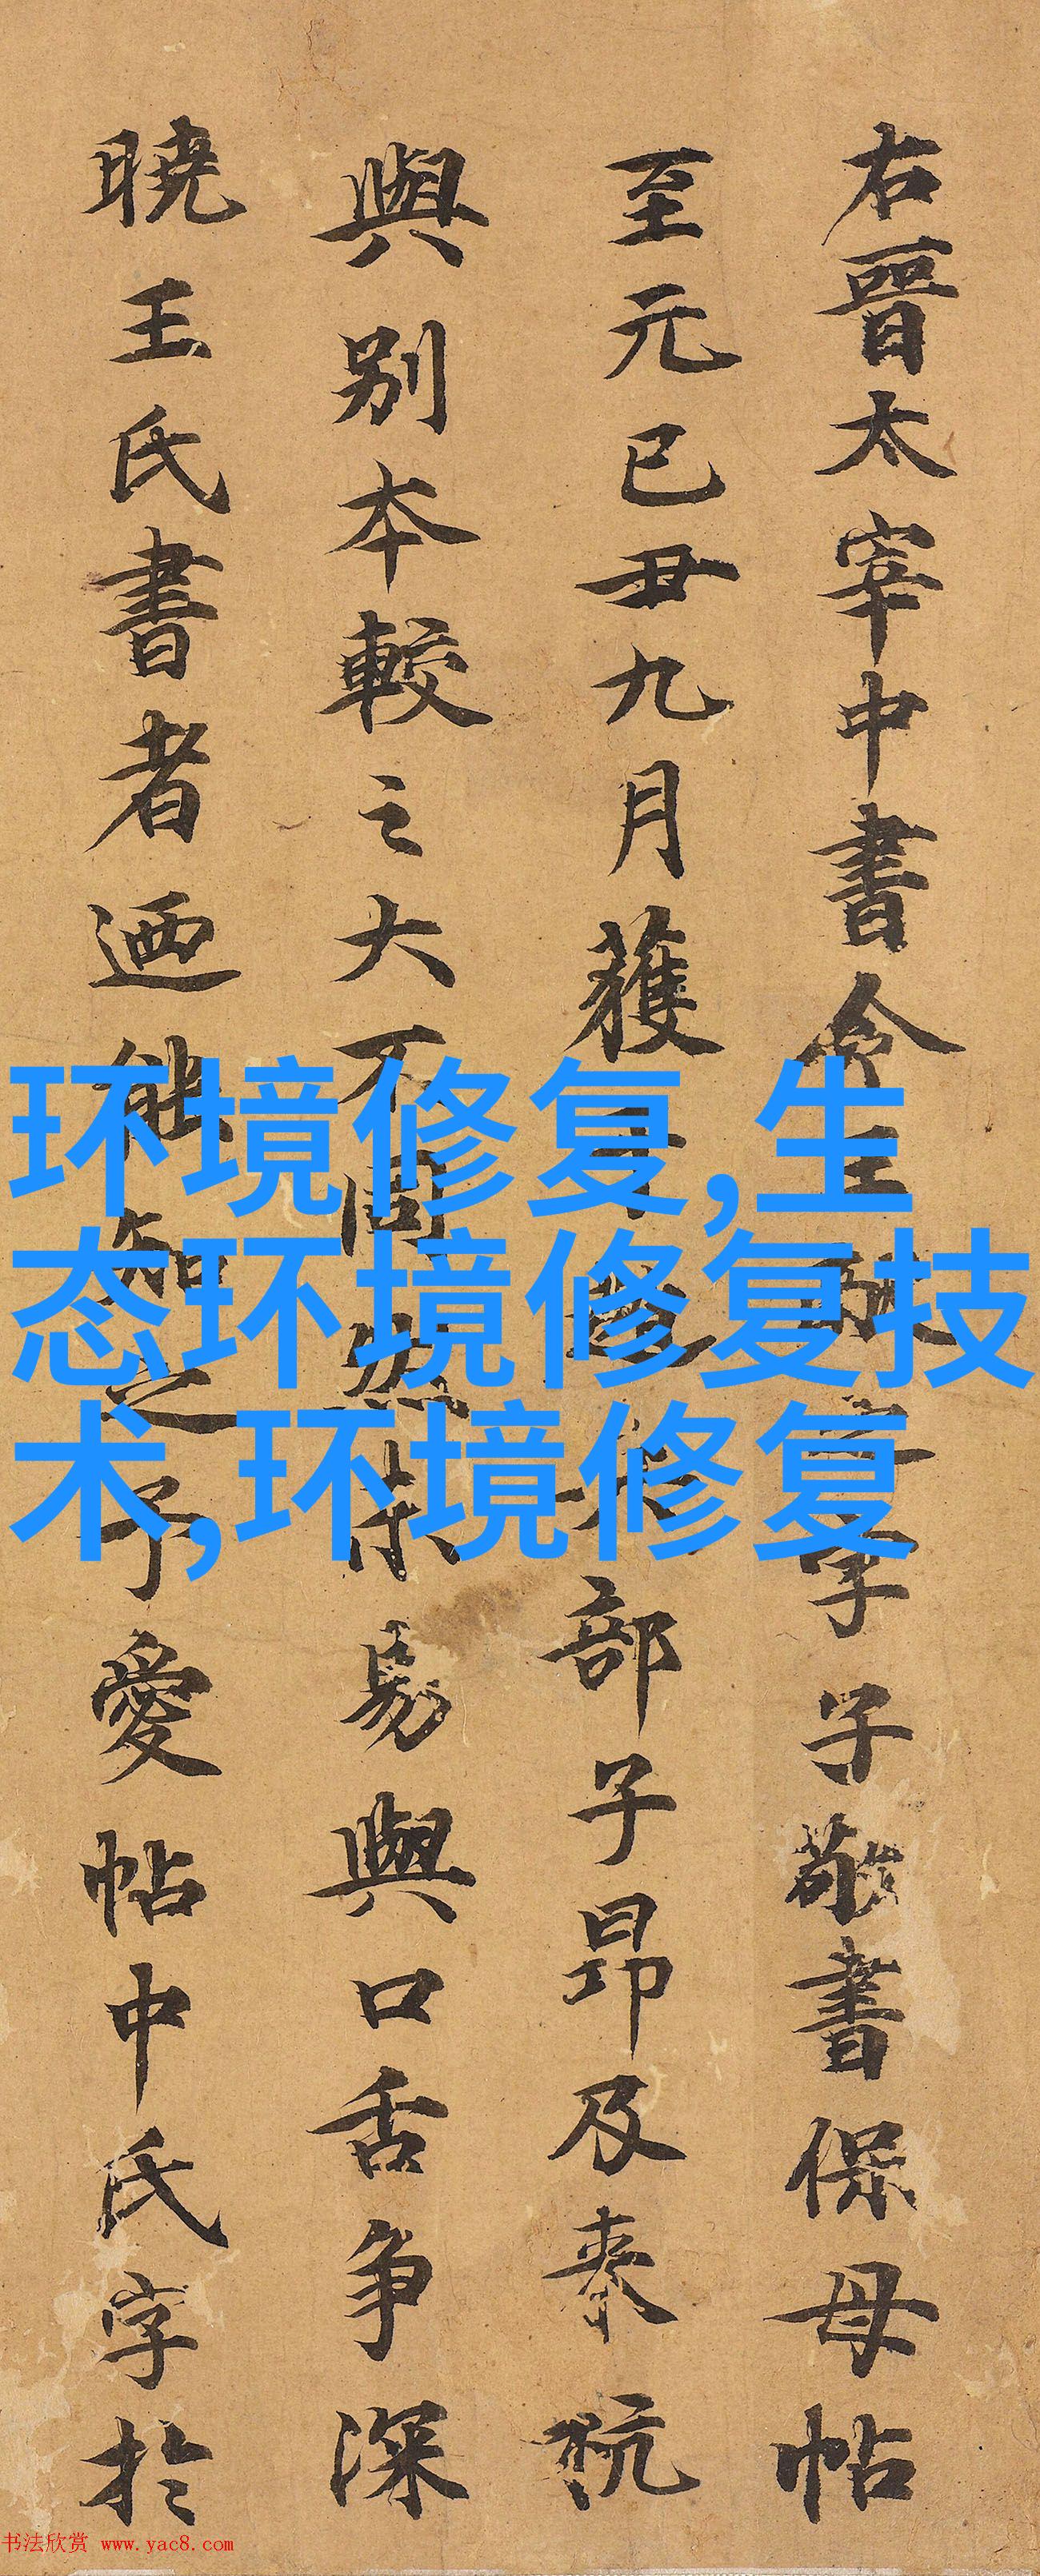 右晉太宰中書令王字子敬書保母帖
至元已丑九月獲部子昂及杭
與别本較之大不同然未易與口舌争深
曉王氏書者迺能知之予愛帖中氏字於
环境修复,生
态环境修复技
术,环境修复
书法欣赏 www.yac8.com